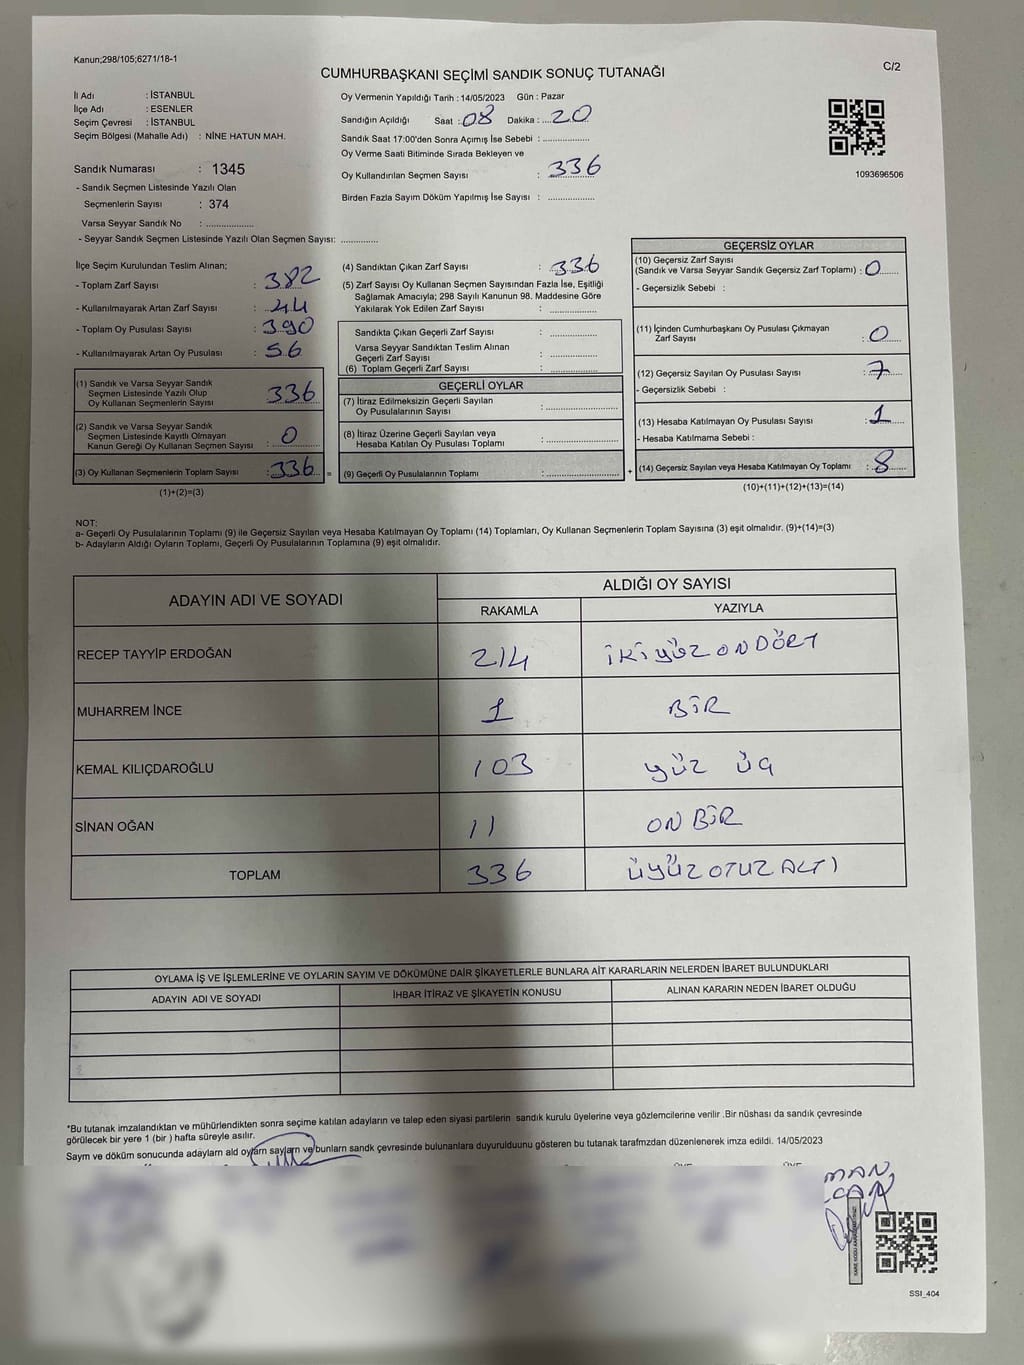 Kanun;298/105;6271/18-1
C/2
CUMHURBAŞKANI SEÇİMİ SANDIK SONUÇ TUTANAĞI
İl Adı : İSTANBUL
İlçe Adı : ESENLER
Seçim Çevresi : İSTANBUL
Seçim Bölgesi (Mahalle Adı) : NİNE HATUN MAH.
Oy Vermenin Yapıldığı Tarih : 14/05/2023 Gün : Pazar
Sandığın Açıldığı Saat : 08 Dakika : 20
Sandık Saat 17:00'den Sonra Açımış İse Sebebi :
Oy Verme Saati Bitiminde Sırada Bekleyen ve
Oy Kullandırılan Seçmen Sayısı : 336
Birden Fazla Sayım Döküm Yapılmış İse Sayısı :
1093696506
Sandık Numarası : 1345
- Sandık Seçmen Listesinde Yazılı Olan
Seçmenlerin Sayısı : 374
Varsa Seyyar Sandık No :
- Seyyar Sandık Seçmen Listesinde Yazılı Olan Seçmen Sayısı:
İlçe Seçim Kurulundan Teslim Alınan;
- Toplam Zarf Sayısı : 382
- Kullanılmayarak Artan Zarf Sayısı : 44
- Toplam Oy Pusulası Sayısı : 390
- Kullanılmayarak Artan Oy Pusulası : 56
(1) Sandık ve Varsa Seyyar Sandık
Seçmen Listesinde Yazılı Olup
Oy Kullanan Seçmenlerin Sayısı : 336
(2) Sandık ve Varsa Seyyar Sandık
Seçmen Listesinde Kayıtlı Olmayan
Kanun Gereği Oy Kullanan Seçmen Sayısı : 0
(3) Oy Kullanan Seçmenlerin Toplam Sayısı : 336 =
(1)+(2)=(3)
(4) Sandıktan Çıkan Zarf Sayısı : 336
(5) Zarf Sayısı Oy Kullanan Seçmen Sayısından Fazla İse, Eşitliği
Sağlamak Amacıyla; 298 Sayılı Kanunun 98. Maddesine Göre
Yakılarak Yok Edilen Zarf Sayısı :
Sandıkta Çıkan Geçerli Zarf Sayısı :
Varsa Seyyar Sandıktan Teslim Alınan
Geçerli Zarf Sayısı :
(6) Toplam Geçerli Zarf Sayısı :
GEÇERLİ OYLAR
(7) İtiraz Edilmeksizin Geçerli Sayılan
Oy Pusulalarının Sayısı :
(8) İtiraz Üzerine Geçerli Sayılan veya
Hesaba Katılan Oy Pusulası Toplamı :
(9) Geçerli Oy Pusulalarının Toplamı : +
GEÇERSİZ OYLAR
(10) Geçersiz Zarf Sayısı
(Sandık ve Varsa Seyyar Sandık Geçersiz Zarf Toplamı) : 0
- Geçersizlik Sebebi :
(11) İçinden Cumhurbaşkanı Oy Pusulası Çıkmayan
Zarf Sayısı : 0
(12) Geçersiz Sayılan Oy Pusulası Sayısı : 7
- Geçersizlik Sebebi :
(13) Hesaba Katılmayan Oy Pusulası Sayısı : 1
- Hesaba Katılmama Sebebi :
(14) Geçersiz Sayılan veya Hesaba Katılmayan Oy Toplamı : 8
(10)+(11)+(12)+(13)=(14)
NOT:
a- Geçerli Oy Pusulalarının Toplamı (9) ile Geçersiz Sayılan veya Hesaba Katılmayan Oy Toplamı (14) Toplamları, Oy Kullanan Seçmenlerin Toplam Sayısına (3) eşit olmalıdır. (9)+(14)=(3)
b- Adayların Aldığı Oyların Toplamı, Geçerli Oy Pusulalarının Toplamına (9) eşit olmalıdır.
ADAYIN ADI VE SOYADI
ALDIĞI OY SAYISI
RAKAMLA YAZIYLA
RECEP TAYYİP ERDOĞAN 214 İKİ YÜZ ON DÖRT
MUHARREM İNCE 1 BİR
KEMAL KILIÇDAROĞLU 103 YÜZ ÜÇ
SİNAN OĞAN 11 ON BİR
TOPLAM 336 ÜYÜZ OTUZ ALTI
OYLAMA İŞ VE İŞLEMLERİNE VE OYLARIN SAYIM VE DÖKÜMÜNE DAİR ŞİKAYETLERLE BUNLARA AİT KARARLARIN NELERDEN İBARET BULUNDUKLARI
ADAYIN ADI VE SOYADI İHBAR İTİRAZ VE ŞİKAYETİN KONUSU ALINAN KARARIN NEDEN İBARET OLDUĞU
*Bu tutanak imzalandıktan ve mühürlendikten sonra seçime katılan adayların ve talep eden siyasi partilerin sandık kurulu üyelerine veya gözlemcilerine verilir .Bir nüshası da sandık çevresinde
görülecek bir yere 1 (bir ) hafta süreyle asılır.
Saym ve döküm sonucunda adaylarn ald oylarn saylarn ve bunlarn sandk çevresinde bulunanlara duyurulduunu gösteren bu tutanak tarafmzdan düzenlenerek imza edildi. 14/05/2023
SSI_404